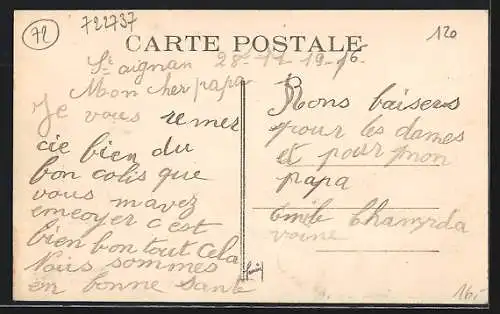 72
722737
120
CARTE POSTALE
St aignan 28-11-19-16.
Mon cher papa
Je vous remer
cie bien du
bon colis que
vous mavez
envoyer c est
bien bon tout cela
Nous sommes
en bonne sante
Bons baisers
pour les dames
et pour mon
papa
Emile
voine
16.